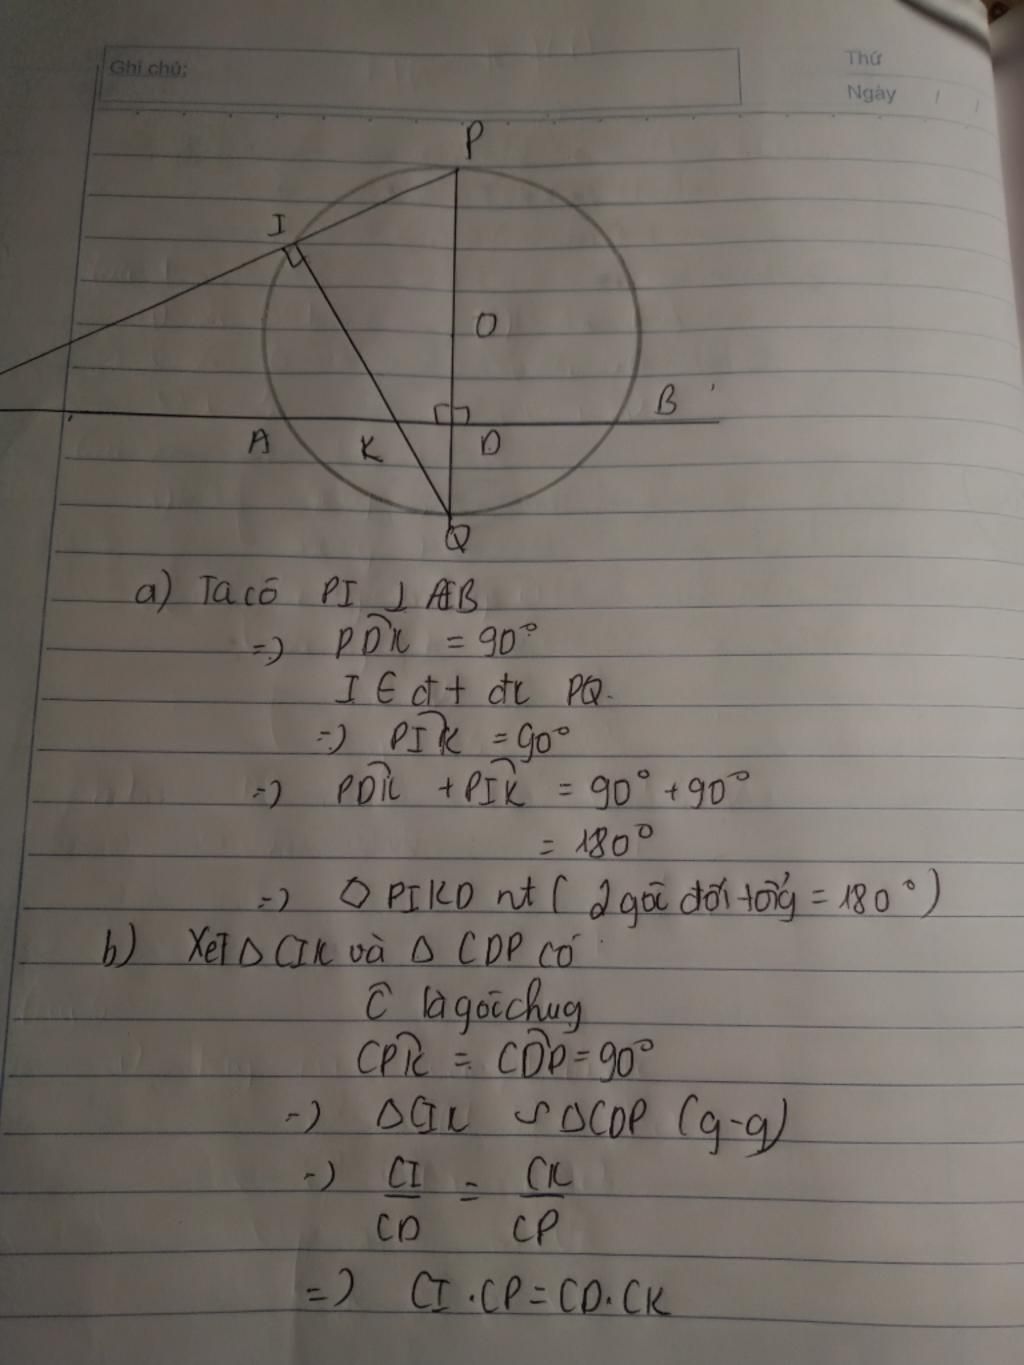 Ghi chú:
Thứ
Ngày / /
P
I
O
B
A
K
D
Q
a) Ta có PI ⊥ AB
=> PDK = 90°
I ∈ đt đk PQ.
=> PIK = 90°
=> PDK + PIK = 90° + 90°
= 180°
=> ◇ PIKD nt ( 2 góc đối tổng = 180° )
b) Xét Δ CIK và Δ CDP có
Ĉ là góc chug
CPK = CDP = 90°
=> ΔCIK ∽ ΔCDP (g-g)
=> CI/CD = CK/CP
=> CI . CP = CD . CK